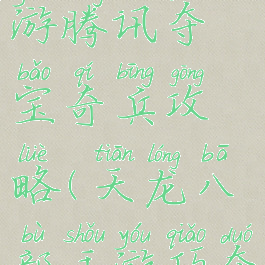 游腾讯夺
bǎo qí bīng gōng
宝奇兵攻
lüè tiān lóng bā
略(天龙八
bù shǒu yóu qiǎo duó
部手游巧夺